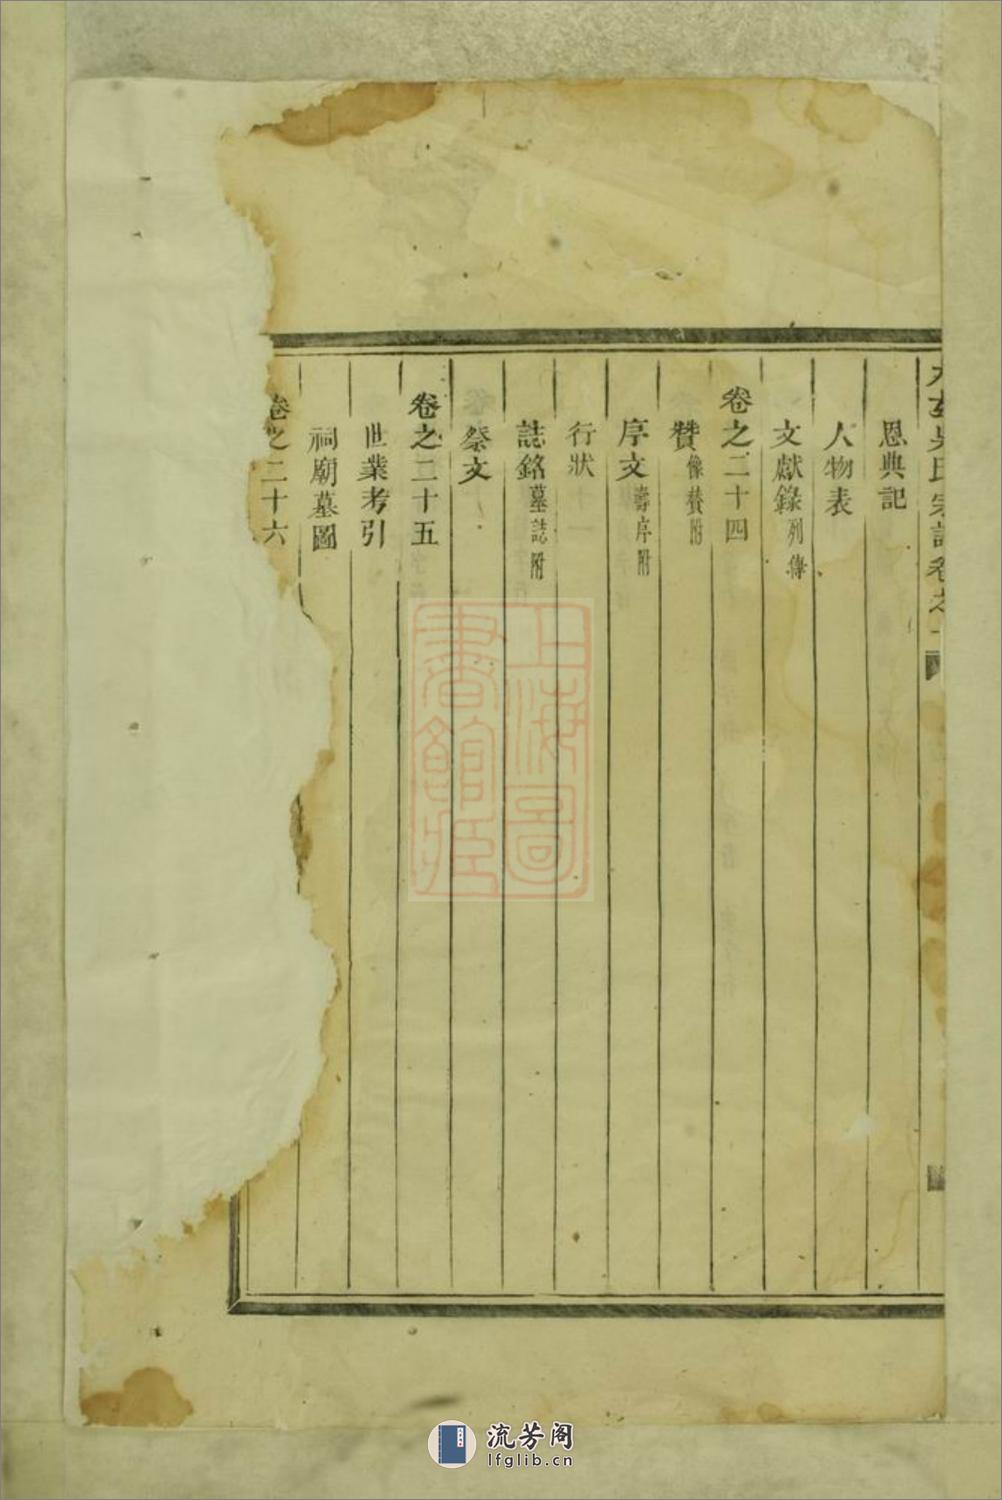 吳氏宗譜卷之
恩典記
人物表
文獻錄列傳
卷之二十四
贊像贊附
序文壽序附
行狀
誌銘墓誌附
祭文
卷之二十五
世業考引
祠廟墓圖
卷之二十六
上海圖
書館藏
流芳阁
lfglib.cn